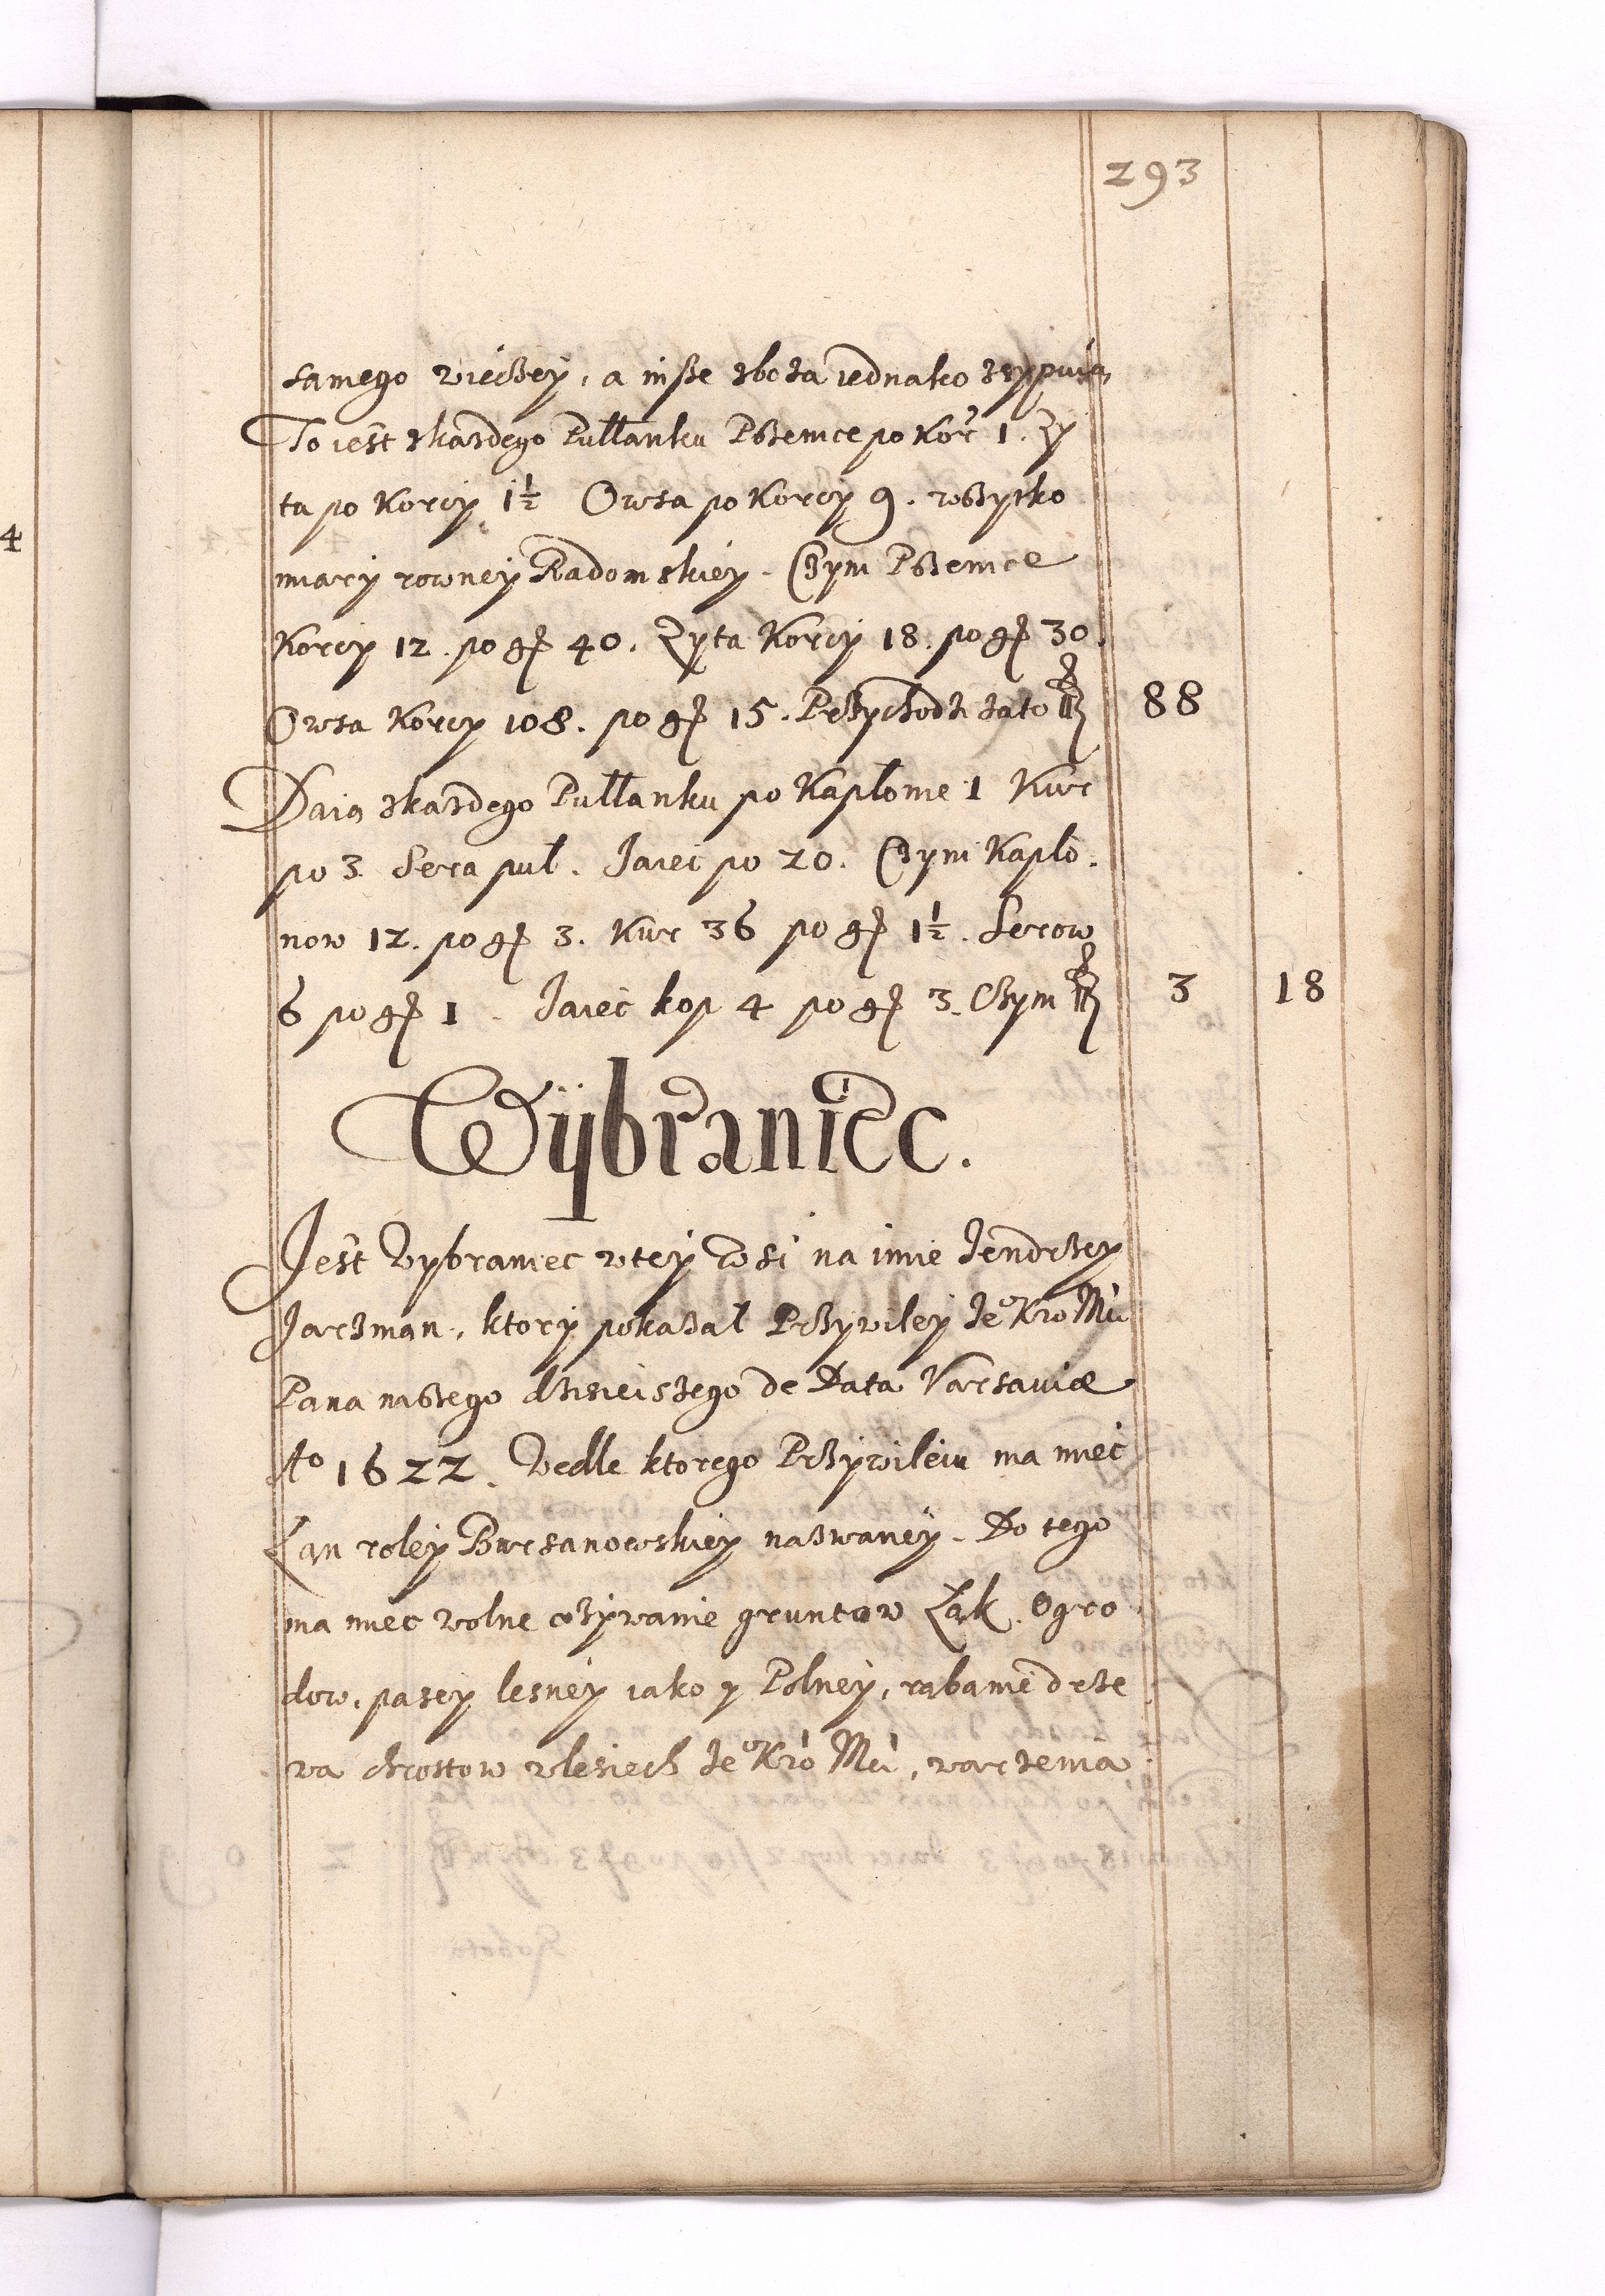 293
samego więczey, a insze zboża iednako zsypuią
To iest zkazdego Pułłanku Pszenice po Kor: 1. Zy
ta po Korcy 1½ Owsa po Korcy 9. wszytko
miary rowney Radomskiey. Czym Pszenice
Korcy 12. po gẜ 40. Zyta Korcy 18. po gẜ 30.
Owsa Korcy 108. po gẜ 15. Przychodzi zato 88
Daią zkazdego Pułłanku po Kapłonie 1 Kur
po 3 Sera puł. Jaiec po 20. Czym Kapło-
now 12. po gẜ 3. Kur 36 po gẜ 1½. Serow
6 po gẜ 1. Jaiec kop 4 po gẜ 3. Czym 3 18
Wybraniec.
Jest Wybraniec wtey Wsi na imie Jendrzey
Jarzman, ktory pokazał Przywiley Je° Kro Mci
Pana naszego dzisieiszego de Data Varsaviæ
A° 1622. Wedle ktorego Przywileiu ma miec
Łan roley Bursanowskiey nazwaney. Do tego
ma miec wolne vzywanie gruntow Łąk. Ogro
dow, paszey lesney iako y Polney, rąbanie drze
wa chrostow wlesiech Je° Kro Mci, warzenia
4